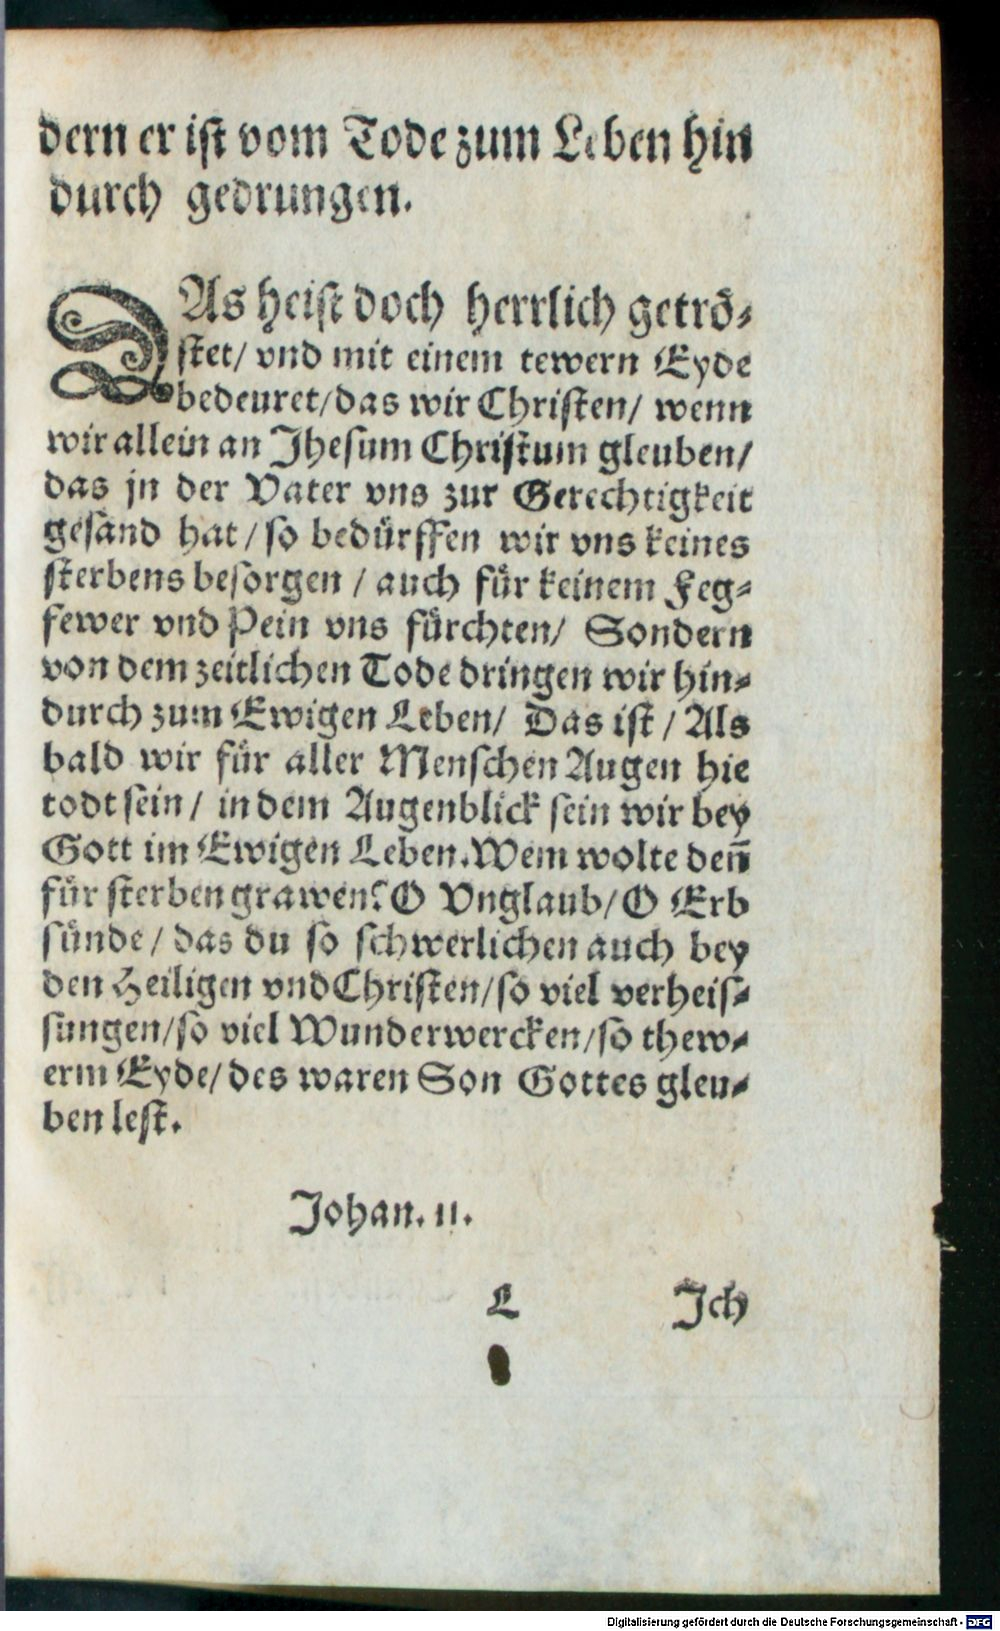 dern er ist vom Tode zum Leben hin
durch gedrungen.
DAs heist doch herrlich getrö-
stet/ vnd mit einem tewern Eyde
bedeuret/ das wir Christen/ wenn
wir allein an Jhesum Christum gleuben/
das jn der Vater vns zur Gerechtigkeit
gesand hat/ so bedürffen wir vns keines
sterbens besorgen/ auch für keinem Feg-
fewer vnd Pein vns fürchten/ Sondern
von dem zeitlichen Tode dringen wir hin-
durch zum Ewigen Leben/ Das ist/ Als
bald wir für aller Menschen Augen hie
todt sein/ in dem Augenblick sein wir bey
Gott im Ewigen Leben. Wem wolte deñ
für sterben grawen? O Vnglaub/ O Erb
sünde/ das du so schwerlichen auch bey
den Heiligen vnd Christen/ so viel verheis-
sungen/ so viel Wunderwercken/ so thew-
erm Eyde/ des waren Son Gottes gleu-
ben lest.
Johan. 11.
L Jch
Digitalisierung gefördert durch die Deutsche Forschungsgemeinschaft - DFG